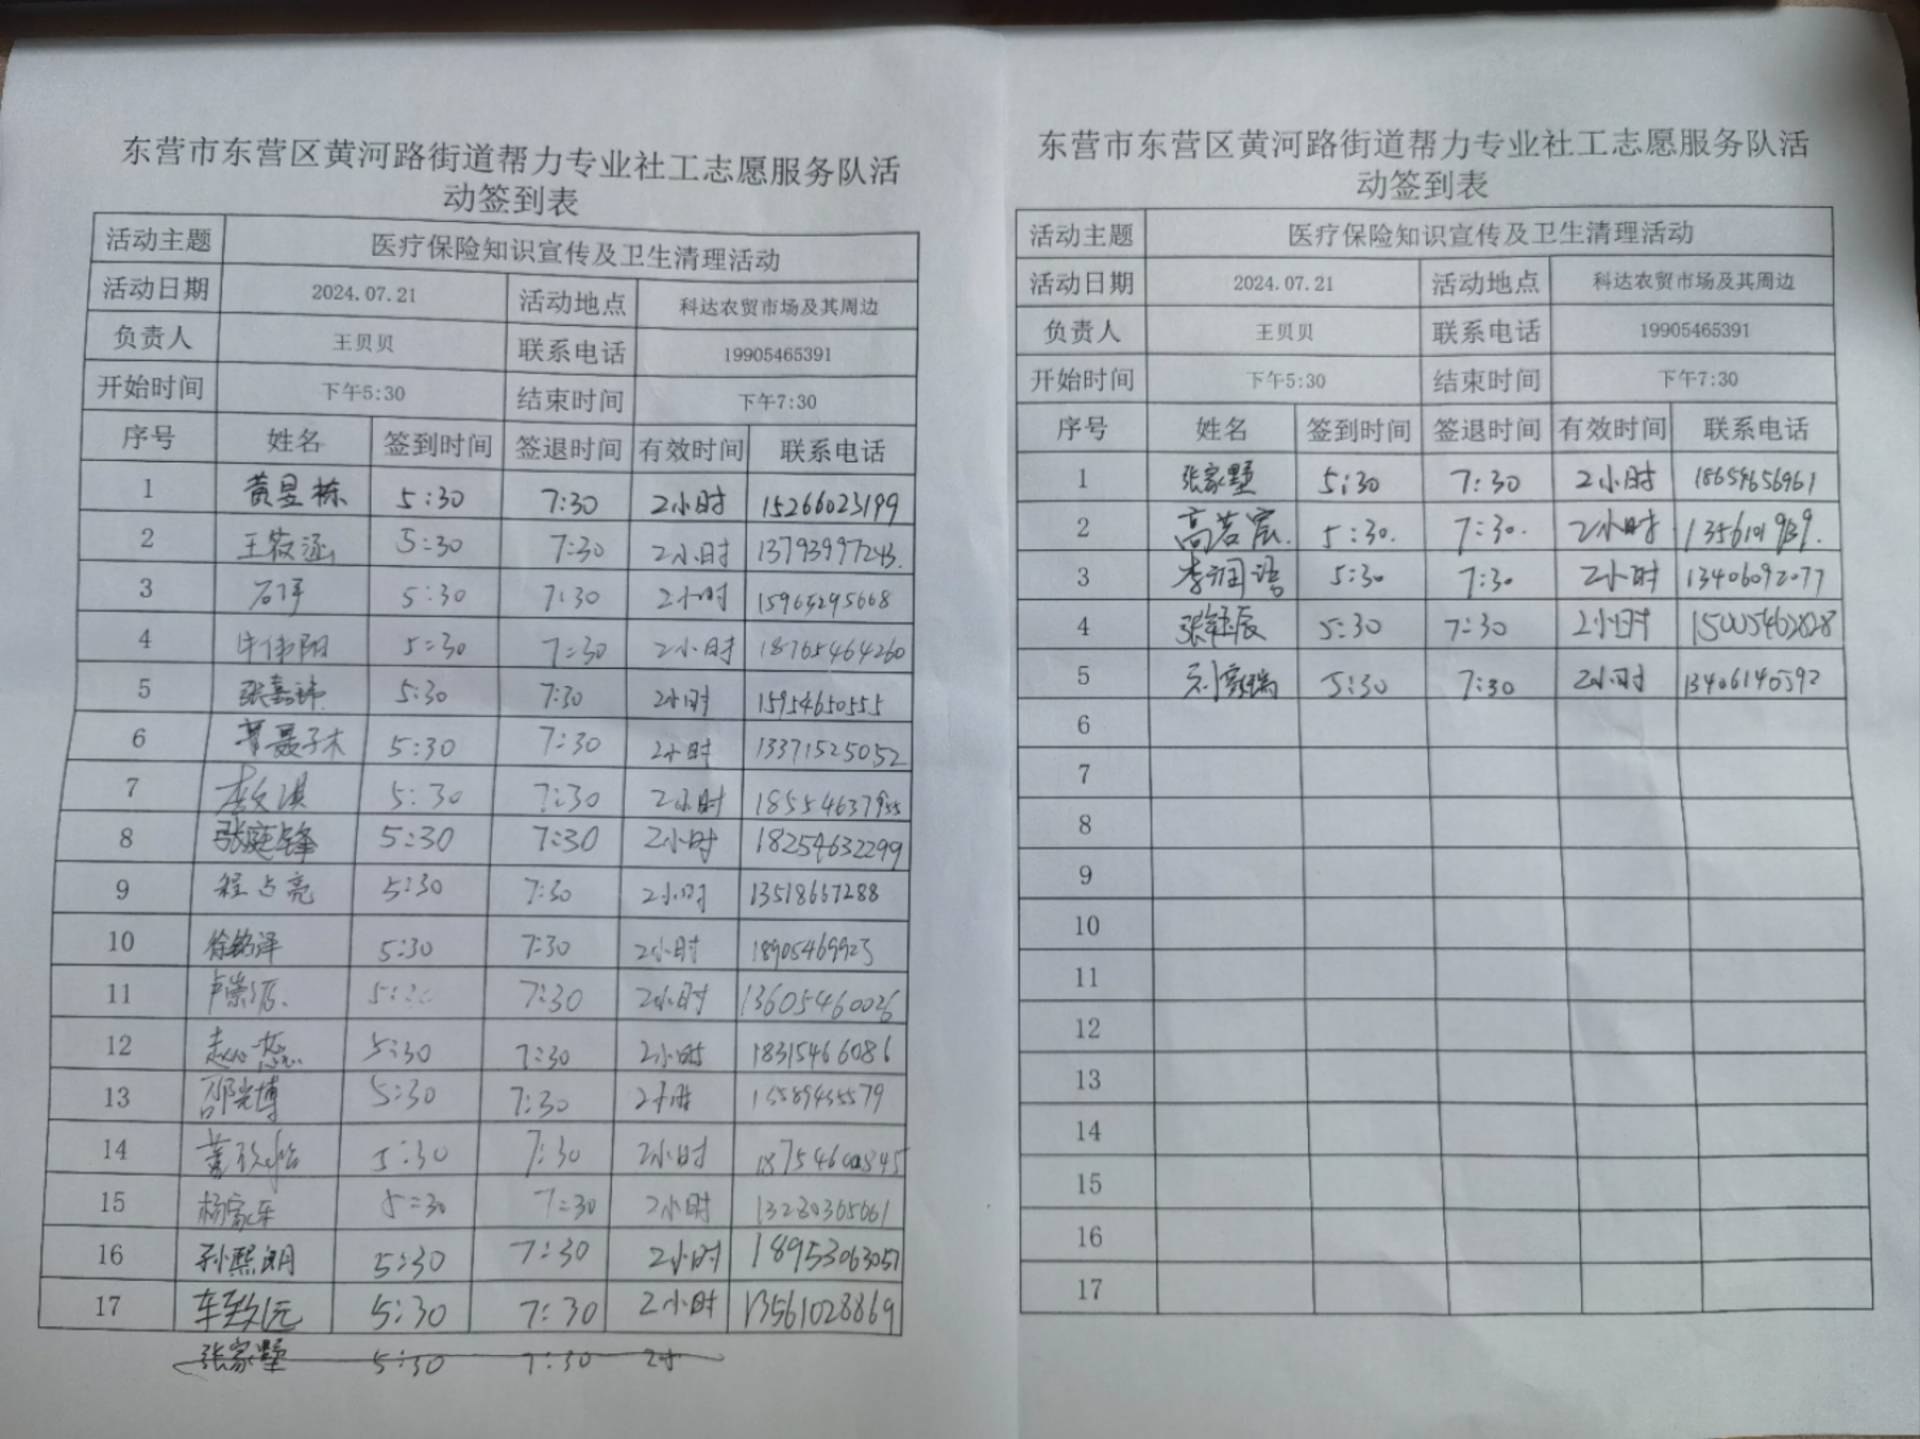 东营市东营区黄河路街道帮力专业社工志愿服务队活
动签到表
活动主题 医疗保险知识宣传及卫生清理活动
活动日期 2024.07.21 活动地点 科达农贸市场及其周边
负责人 王贝贝 联系电话 19905465391
开始时间 下午5:30 结束时间 下午7:30
序号 姓名 签到时间 签退时间 有效时间 联系电话
1 黄昱栋 5:30 7:30 2小时 15266023199
2 王筱涵 5:30 7:30 2小时 13793997243.
3 5:30 7:30 2小时 15965295668
4 牛伟阳 5:30 7:30 2小时 18765464260
5 张嘉 5:30 7:30 2小时 15954650555
6 聂子木 5:30 7:30 2小时 13371525052
7 李文淇 5:30 7:30 2小时 18554637955
8 张庭锋 5:30 7:30 2小时 18254632299
9 程占亮 5:30 7:30 2小时 13518657288
10 徐铭泽 5:30 7:30 2小时 18905469923
11 卢崇 7:30 2小时 13605460026
12 赵心 5:30 7:30 2小时 18315466086
13 邵光博 5:30 7:30
14 5:30 7:30 2小时
15 杨家乐 5:30 7:30 2小时 13280365661
16 孙熙朗 5:30 7:30 2小时 18953063057
17 车致远 5:30 7:30 2小时 13561028869
张家墅 5:30 7:30
东营市东营区黄河路街道帮力专业社工志愿服务队活
动签到表
活动主题 医疗保险知识宣传及卫生清理活动
活动日期 2024.07.21 活动地点 科达农贸市场及其周边
负责人 王贝贝 联系电话 19905465391
开始时间 下午5:30 结束时间 下午7:30
序号 姓名 签到时间 签退时间 有效时间 联系电话
1 张家墅 5:30 7:30 2小时 18654656961
2 高若宸. 5:30. 7:30. 2小时
3 李润语 5:30 7:30 2小时 13406092077
4 张钰辰 5:30 7:30 2小时 15005462828
5 刘 5:30 7:30 2小时 13406140592
6
7
8
9
10
11
12
13
14
15
16
17